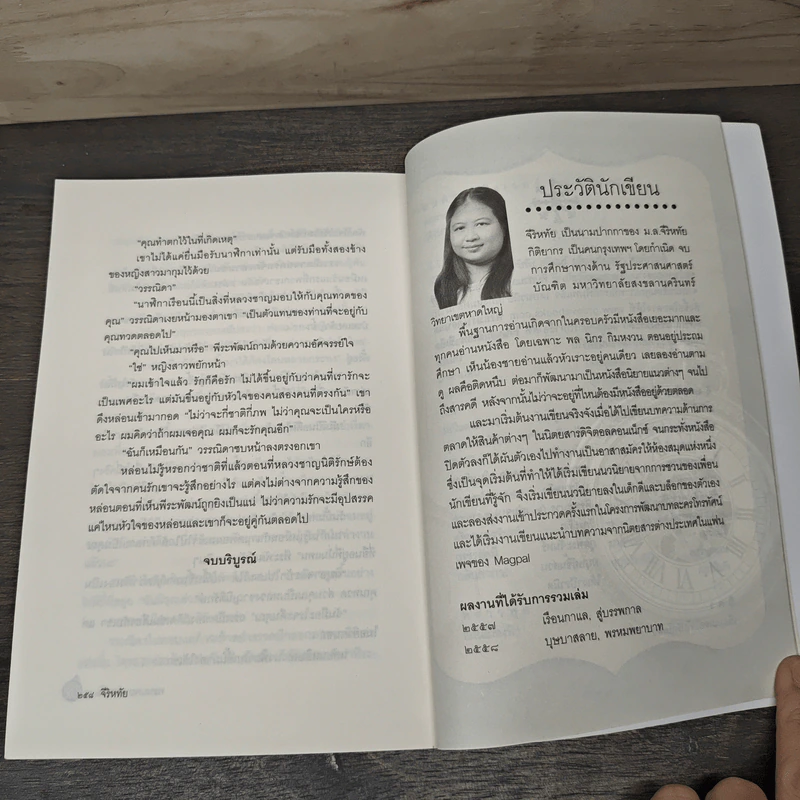 "คุณทำตกไว้ในที่เกิดเหตุ"
เขาไม่ได้แค่ยื่นมือรับนาฬิกาเท่านั้น แต่รับมือทั้งสองข้าง
ของหญิงสาวมากุมไว้ด้วย
"วรรณิดา"
"นาฬิกาเรือนนี้เป็นสิ่งที่หลวงชาญมอบให้กับคุณทวดของ
คุณ" วรรณิดาเงยหน้ามองตาเขา "เป็นตัวแทนของท่านที่จะอยู่กับ
คุณทวดตลอดไป"
"คุณไปเห็นมาหรือ" พีระพัฒน์ถามด้วยความอัศจรรย์ใจ
"ใช่" หญิงสาวพยักหน้า
"ผมเข้าใจแล้ว รักก็คือรัก ไม่ได้ขึ้นอยู่กับว่าคนที่เรารักจะ
เป็นเพศอะไร แต่มันขึ้นอยู่กับหัวใจของคนสองคนที่ตรงกัน" เขา
ดึงหล่อนเข้ามากอด "ไม่ว่าจะกี่ชาติกี่ภพ ไม่ว่าคุณจะเป็นใครหรือ
อะไร ผมคิดว่าถ้าผมเจอคุณ ผมก็จะรักคุณอีก"
"ฉันก็เหมือนกัน" วรรณิดาซบหน้าลงตรงอกเขา
หล่อนไม่รู้หรอกว่าชาติที่แล้วตอนที่หลวงชาญนิติรักษ์ต้อง
ตัดใจจากคนรักเขาจะรู้สึกอย่างไร แต่คงไม่ต่างจากความรู้สึกของ
หล่อนตอนที่เห็นพีระพัฒน์ถูกยิงเป็นแน่ ไม่ว่าความรักจะมีอุปสรรค
แค่ไหนหัวใจของหล่อนและเขาก็จะอยู่คู่กันตลอดไป
จบบริบูรณ์
๒๕๘ จิรหทัย
ประวัตินักเขียน
จิรหทัย เป็นนามปากกาของ ม.ล.จิรหทัย
กิติยากร เป็นคนกรุงเทพฯ โดยกำเนิด จบ
การศึกษาทางด้าน รัฐประศาสนศาสตร์
บัณฑิต มหาวิทยาลัยสงขลานครินทร์
วิทยาเขตหาดใหญ่
พื้นฐานการอ่านเกิดจากในครอบครัวมีหนังสือเยอะมากและ
ทุกคนอ่านหนังสือ โดยเฉพาะ พล นิกร กิมหงวน ตอนอยู่ประถม
ศึกษา เห็นน้องชายอ่านแล้วหัวเราะอยู่คนเดียว เลยลองอ่านตาม
ดู ผลคือติดหนึบ ต่อมาก็พัฒนามาเป็นหนังสือนิยายแนวต่างๆ จนไป
ถึงสารคดี หลังจากนั้นไม่ว่าจะอยู่ที่ไหนต้องมีหนังสืออยู่ด้วยตลอด
และมาเริ่มต้นงานเขียนจริงจังเมื่อได้ไปเขียนบทความด้านการ
ตลาดให้สินค้าต่างๆ ในนิตยสารดิจิตอลคอนเน็กซ์ จนกระทั่งหนังสือ
ปิดตัวลงก็ได้ผันตัวเองไปทำงานเป็นอาสาสมัครให้ห้องสมุดแห่งหนึ่ง
ซึ่งเป็นจุดเริ่มต้นที่ทำให้ได้เริ่มเขียนนวนิยายจากการชวนของเพื่อน
นักเขียนที่รู้จัก จึงเริ่มเขียนนวนิยายลงในเด็กดีและบล็อกของตัวเอง
และลองส่งงานเข้าประกวดครั้งแรกในโครงการพัฒนาบทละครโทรทัศน์
และได้เริ่มงานเขียนแนะนำบทความจากนิตยสารต่างประเทศในแฟน
เพจของ Magpal
ผลงานที่ได้รับการรวมเล่ม
๒๕๕๗ เรือนกาแล, สู่บรรพกาล
๒๕๕๘ บุษบาสลาย, พรหมพยาบาท